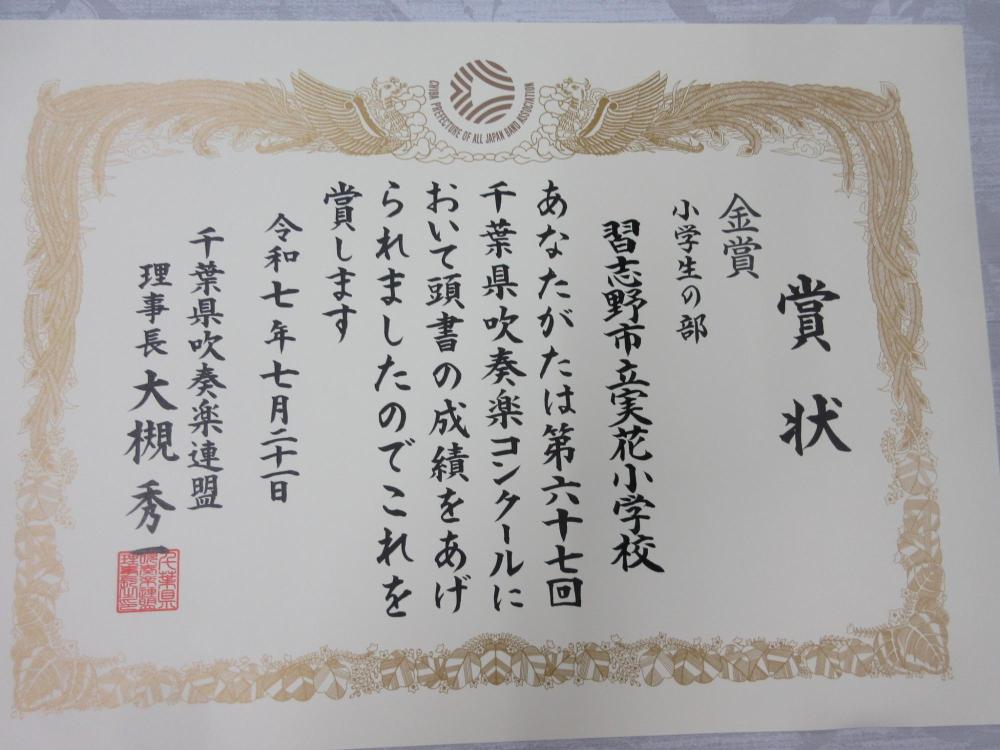 CHIBA PREFECTURE OF ALL JAPAN BAND ASSOCIATION
賞状
金賞
小学生の部
習志野市立実花小学校
あなたがたは第六十七回
千葉県吹奏楽コンクールに
おいて頭書の成績をあげ
られましたのでこれを
賞します
令和七年七月二十一日
千葉県吹奏楽連盟
理事長 大槻秀一
千葉県
吹奏楽連盟
理事長之印